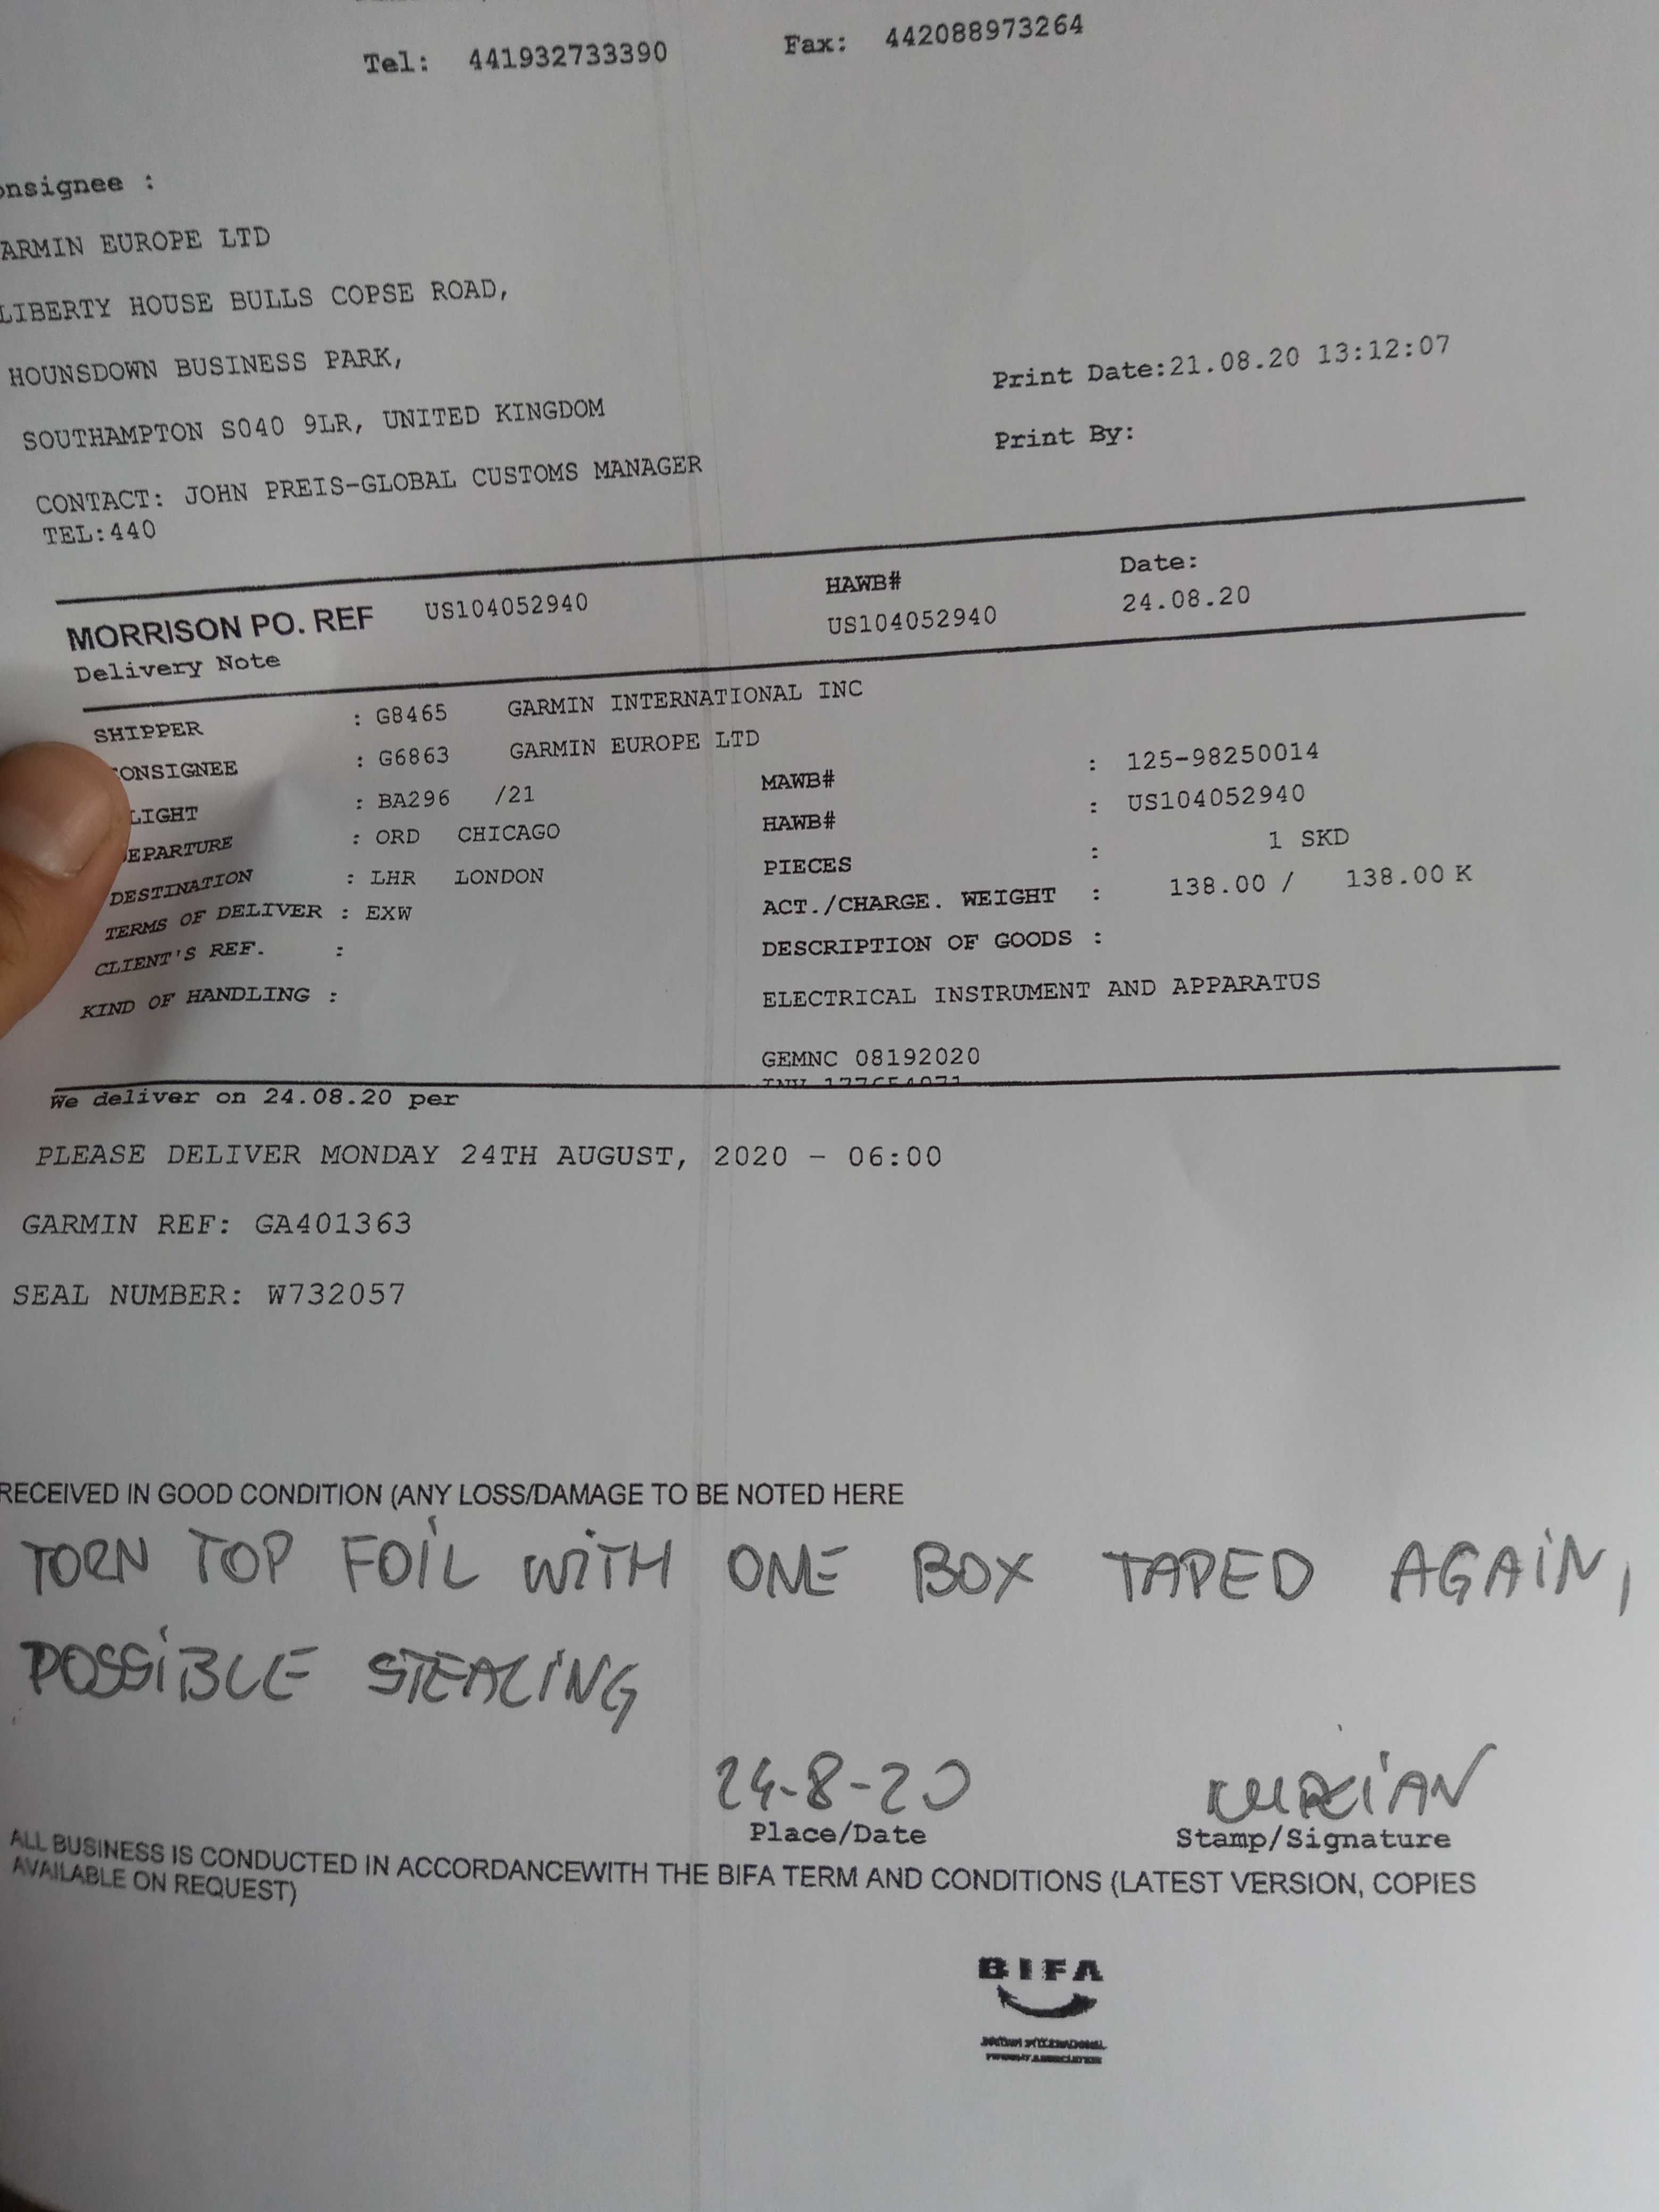 Tel: 441932733390 Fax: 442088973264
onsignee :
ARMIN EUROPE LTD
LIBERTY HOUSE BULLS COPSE ROAD,
HOUNSDOWN BUSINESS PARK,
SOUTHAMPTON SO40 9LR, UNITED KINGDOM
CONTACT: JOHN PREIS-GLOBAL CUSTOMS MANAGER
TEL:440
Print Date:21.08.20 13:12:07
Print By:
MORRISON PO. REF US104052940 HAWB# Date:
Delivery Note US104052940 24.08.20
SHIPPER : G8465 GARMIN INTERNATIONAL INC
ONSIGNEE : G6863 GARMIN EUROPE LTD
LIGHT : BA296 /21
EPARTURE : ORD CHICAGO
DESTINATION : LHR LONDON
TERMS OF DELIVER : EXW
CLIENT'S REF. :
KIND OF HANDLING :
MAWB# : 125-98250014
HAWB# : US104052940
PIECES : 1 SKD
ACT./CHARGE. WEIGHT : 138.00 / 138.00 K
DESCRIPTION OF GOODS :
ELECTRICAL INSTRUMENT AND APPARATUS
GEMNC 08192020
We deliver on 24.08.20 per
PLEASE DELIVER MONDAY 24TH AUGUST, 2020 - 06:00
GARMIN REF: GA401363
SEAL NUMBER: W732057
RECEIVED IN GOOD CONDITION (ANY LOSS/DAMAGE TO BE NOTED HERE
TORN TOP FOIL WITH ONE BOX TAPED AGAIN,
POSSIBLE STEALING
24-8-20
Place/Date Stamp/Signature
ALL BUSINESS IS CONDUCTED IN ACCORDANCEWITH THE BIFA TERM AND CONDITIONS (LATEST VERSION, COPIES
AVAILABLE ON REQUEST)
BIFA